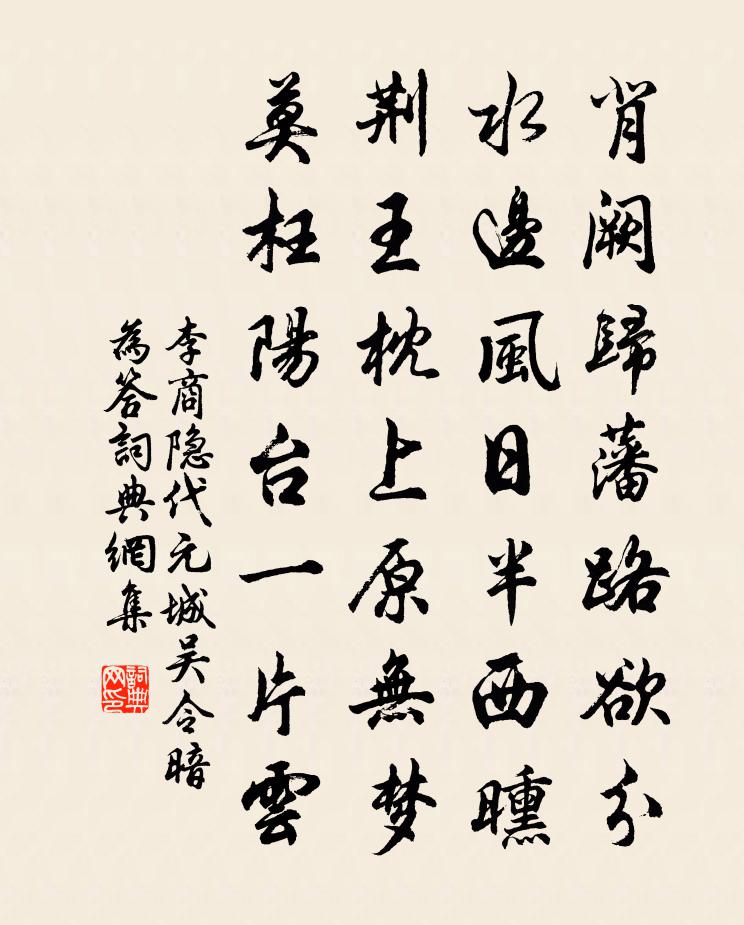 肖阙歸藩路欲分
水邊風日半西曛
荆王枕上原無梦
莫枉陽台一片雲
李商隐代元城吴令暗
為答詞典網集
詞典网印